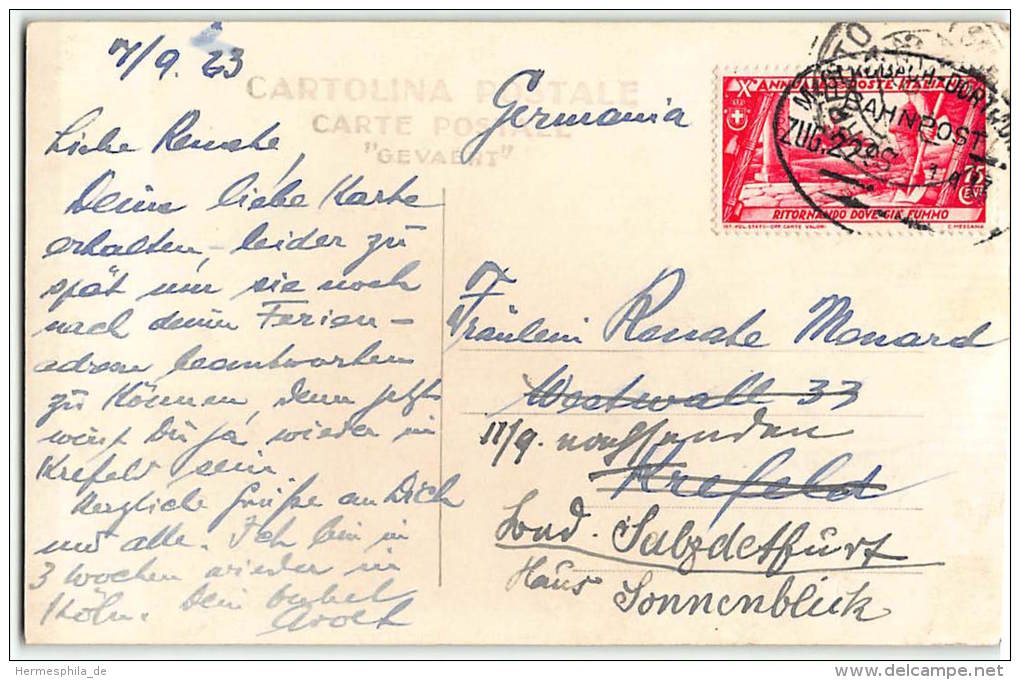 7/9. 33
CARTOLINA POSTALE
CARTE POSTALE
"GEVAERT"
Germania
Liebe Renate,
Deine liebe Karte
erhalten, leider zu
spät um sie noch
nach deiner Ferien-
adresse beantworten
zu können, denn jetzt
wirst Du ja wieder in
Krefeld sein.
Herzliche Grüße an Dich
und alle. Ich bin in
3 Wochen wieder in
Köln. Dein
X ANNUALE POSTE ITALIANE
RITORNANDO DOVE GIÀ FUMMO
IST. POL. STATO-OFF. CARTE VALORI
C. MEZZANA
BAHNPOST
ZUG
Fräulein Renate Monard
Westwall 33
11/9. nachsenden
Krefeld
Salzdetfurt
Haus Sonnenblick
Hermesphila_de
www.delcampe.net